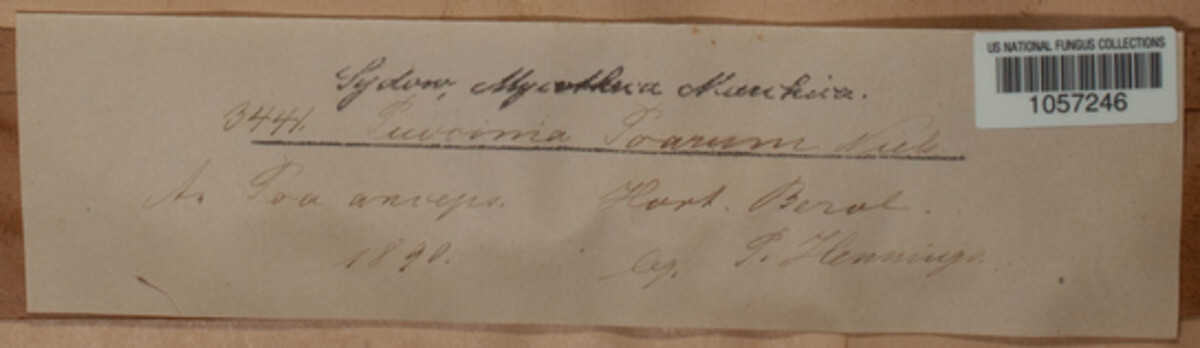 US NATIONAL FUNGUS COLLECTIONS
1057246
Sydow, Mycotheca Marchica.
3441. Puccinia Poarum Niels.
A. Poa anceps. Hort. Berol.
1890. leg. P. Hennings.